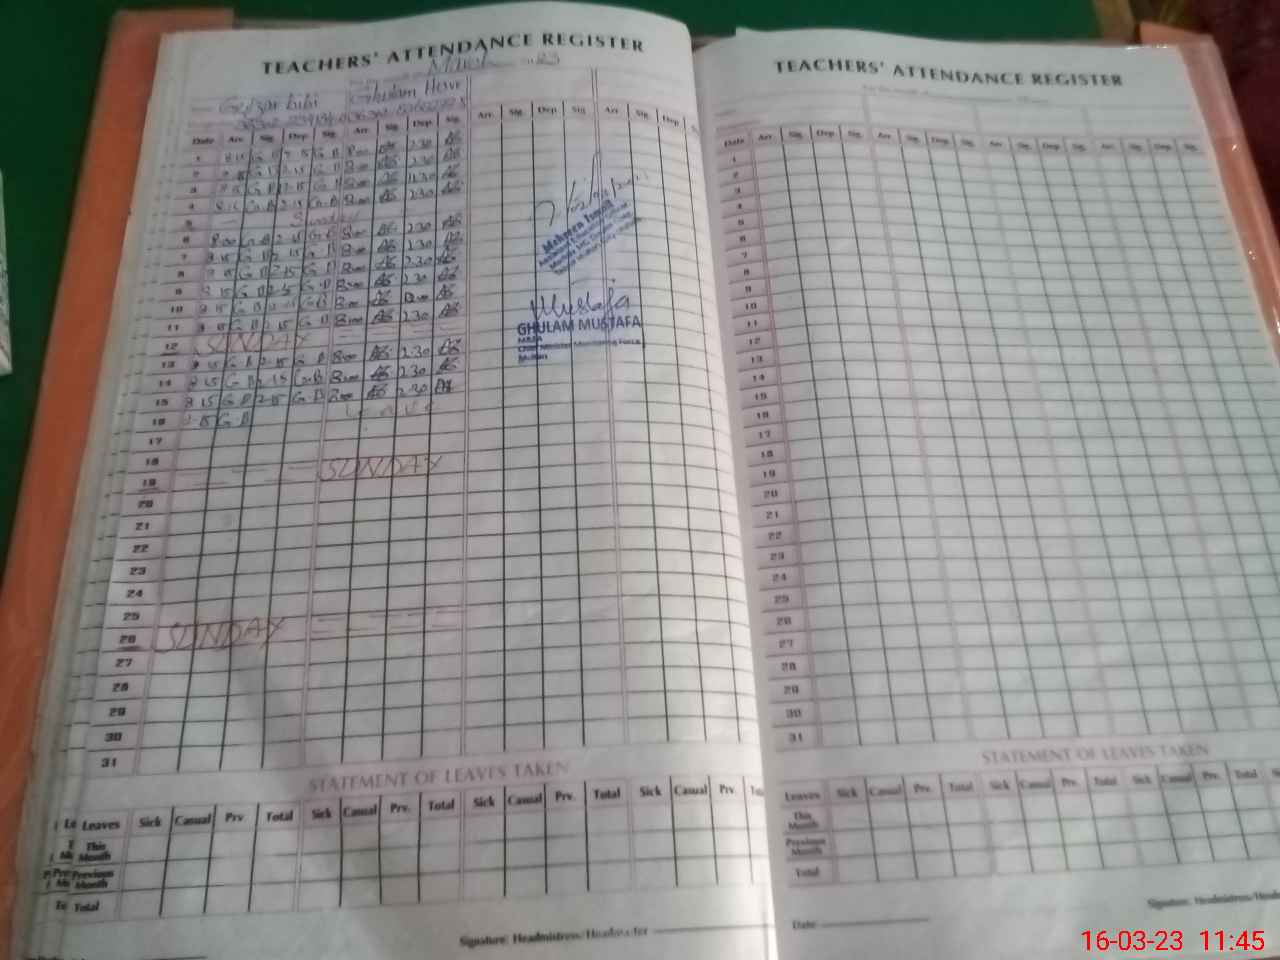 TEACHERS' ATTENDANCE REGISTER
March 23
Gulzar bibi Ghulam
Date Arr. Sig. Dep. Sig. Arr. Sig. Dep. Sig. Arr. Sig. Dep. Sig. Arr. Sig. Dep. Sig.
1 8 15 G B 2 15 G B 8:00 AS 2:30 AS
2 8 15 G B 2 15 G B 8:00 AS 2:30 AS
3 8 15 G B 2 15 G B 8:00 AS 11:30 AS
4 8 15 G B 2 15 G B 8:00 AS 2:30 AS
5 Sunday
6 8 00 G B 2 15 G B 8:00 AS 2:30 AS
7 8 15 G B 2 15 G B 8:00 AS 2:30 AS
8 8 15 G B 2 15 G B 8:00 AS 2:30 AS
9 8 15 G B 2 15 G B 8:00 AS 2:30 AS
10 8 15 G B 2 15 G B 8:00 AS AS
11 8 15 G B 2 15 G B 8:00 AS 2:30 AS
12 SUNDAY
13 8 15 G B 2 15 G B 8:00 AS 2:30 AS
14 8 15 G B 2 15 G B 8:00 AS 2:30 AS
15 8 15 G B 2 15 G B 8:00 AS 2:30 AS
16 8 15 G B Leave
17
18
19 SUNDAY
20
21
22
23
24
25
26 SUNDAY
27
28
29
30
31
Mehreen
Mustafa
GHULAM MUSTAFA
MEA
Chief Minister Monitoring Force
Multan
STATEMENT OF LEAVES TAKEN
Leaves Sick Casual Prv. Total Sick Casual Prv. Total Sick Casual Prv. Total Sick Casual Prv.
This Month
Previous Month
Total
Signature: Headmistress/Headmaster
TEACHERS' ATTENDANCE REGISTER
Date Arr. Sig. Dep. Sig. Arr. Sig. Dep. Sig. Arr. Sig. Dep. Sig. Arr. Sig. Dep. Sig.
1
2
3
4
5
6
7
8
9
10
11
12
13
14
15
16
17
18
19
20
21
22
23
24
25
26
27
28
29
30
31
STATEMENT OF LEAVES TAKEN
Leaves Sick Casual Prv. Total Sick Casual Prv. Total Sick Casual Prv. Total Sick
This Month
Previous Month
Total
Signature: Headmistress/Head
Date
16-03-23 11:45